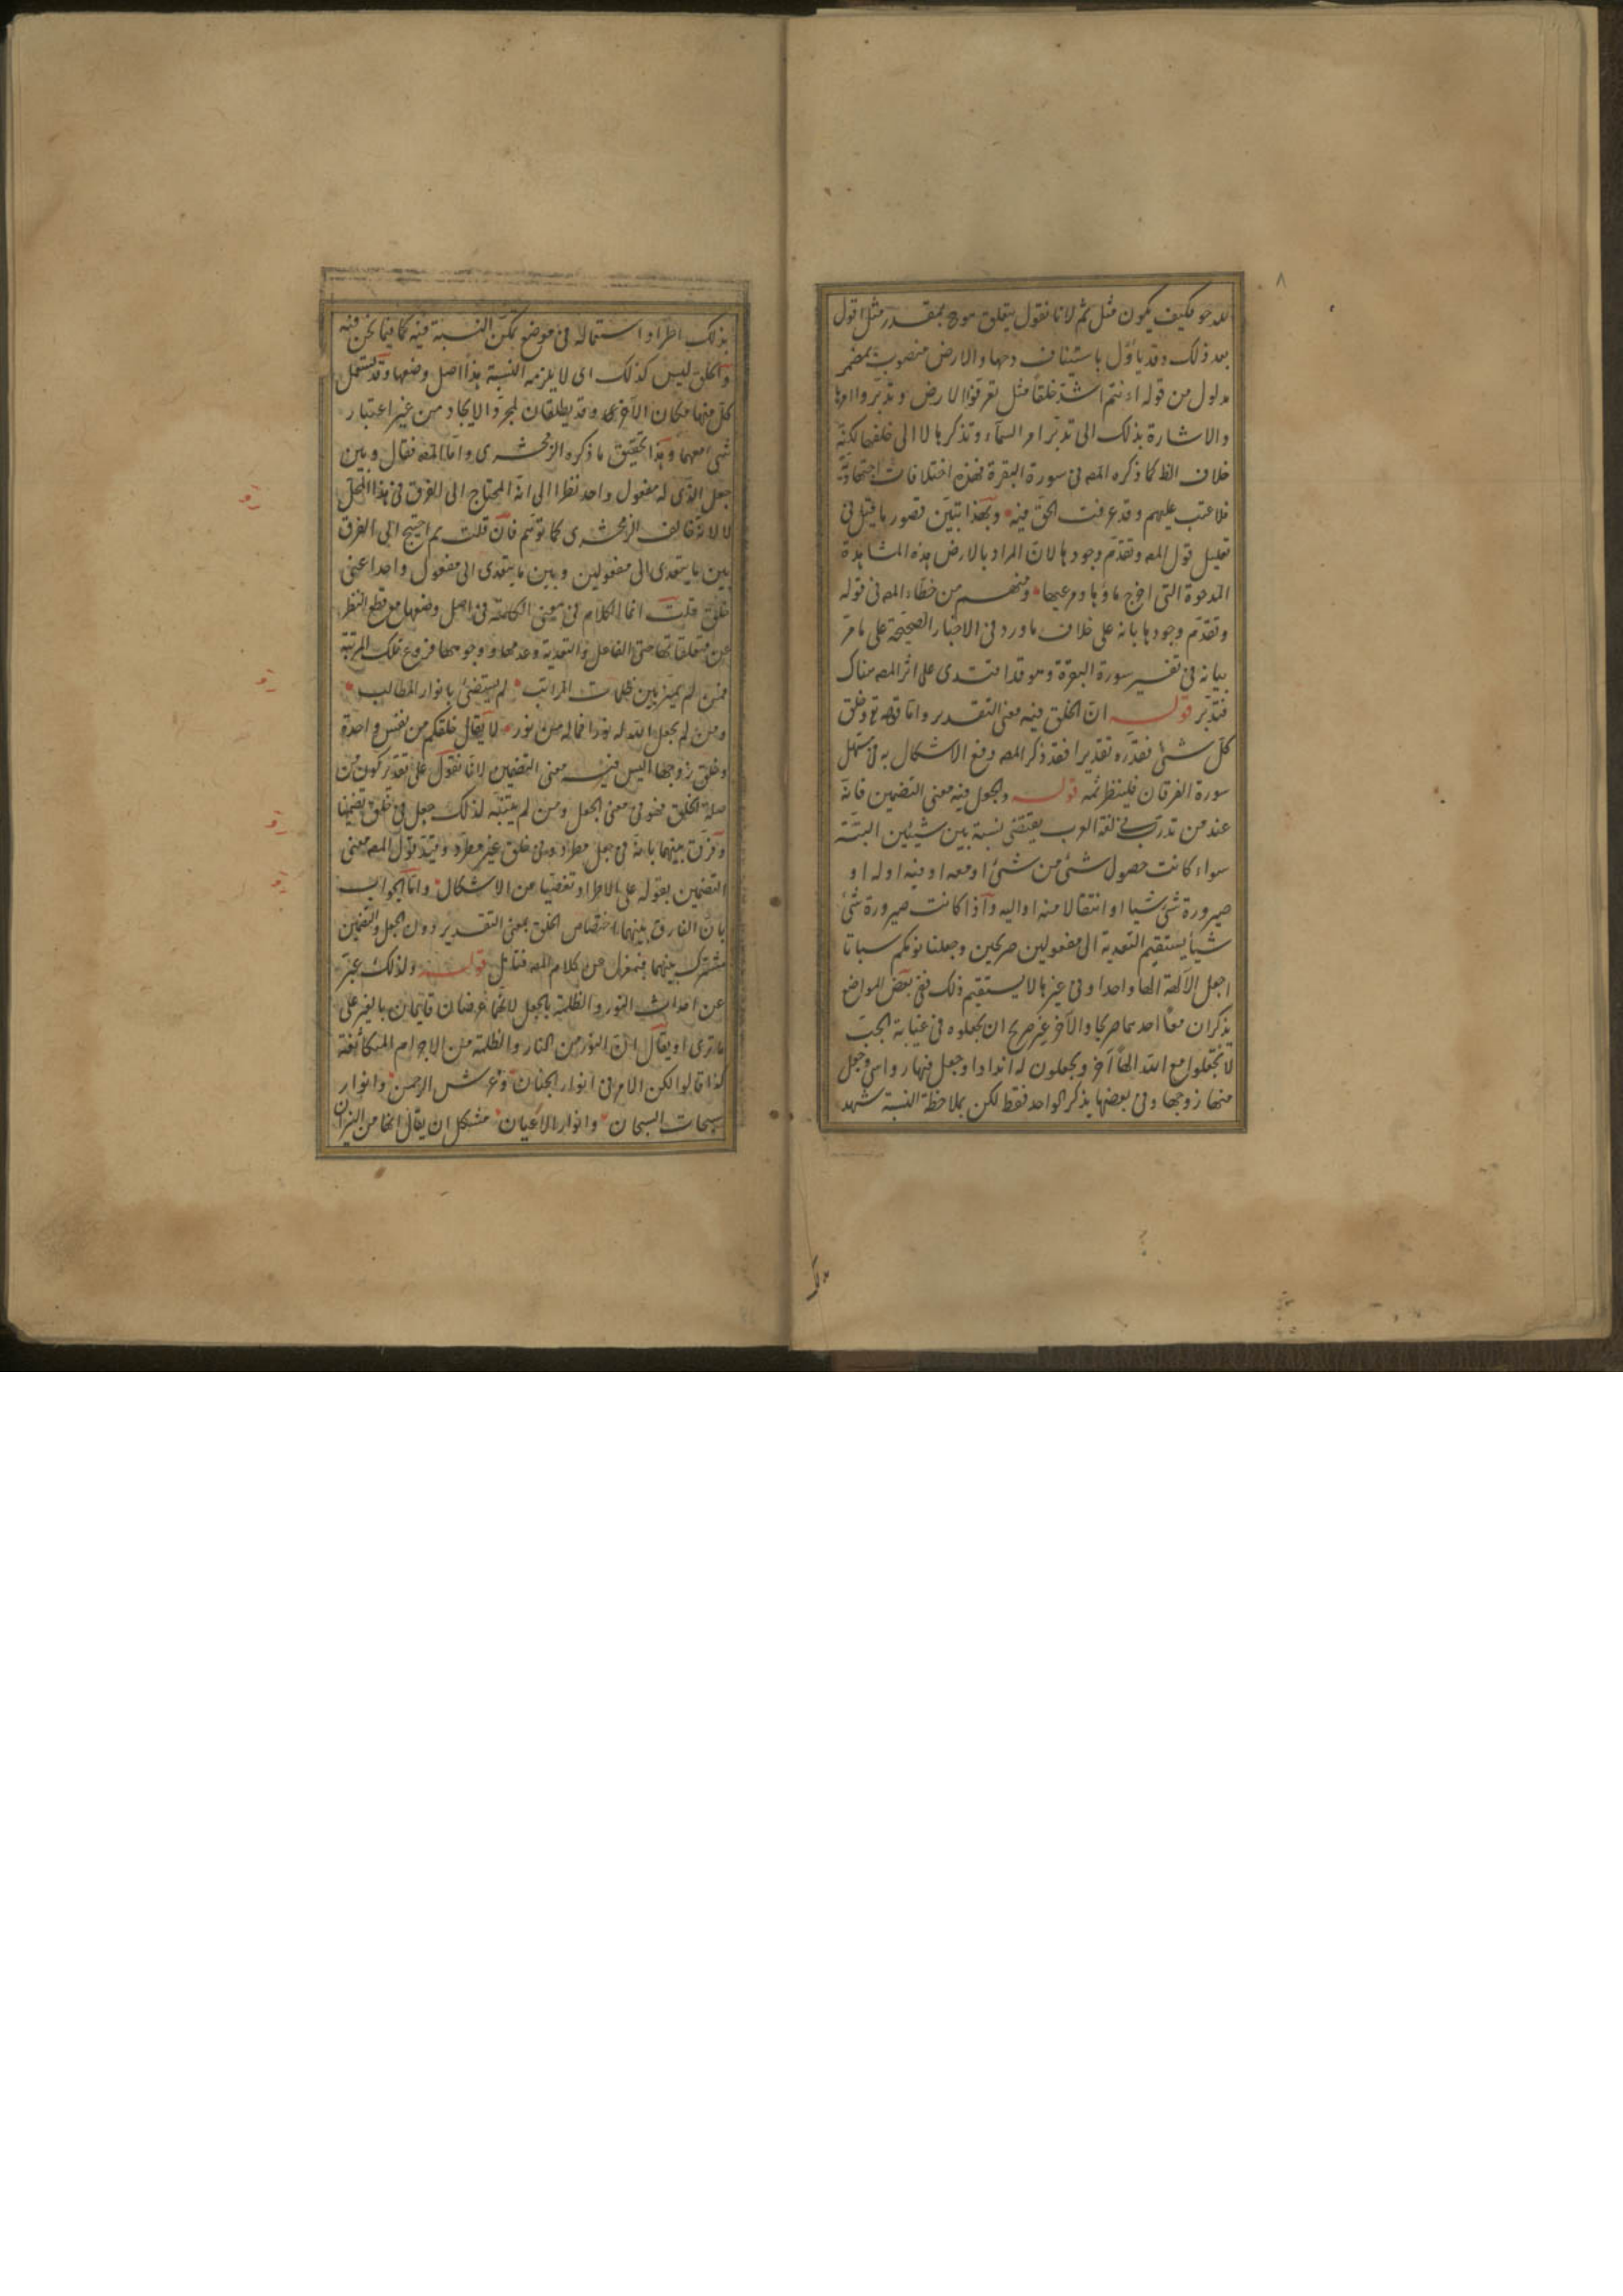 للدحو فكيف يكون مثل ثم لانا نقول يتعلق هو ح بمقدر مثل اقول
بعد ذلك وقد ياؤل باستيناف دحها والارض منصوب بمضمر
مدلول من قوله اءنتم اشد خلقا مثل تعرفوا الارض وتدبروا امرها
والاشارة بذلك الى تدبر امر السمآء وتذكرها لا الى خلقها لكنه
خلاف الظ كما ذكره المصه فى سورة البقرة فهذه اختلافات اجتهادية
فلا عتب عليهم وقد عرفت الحق فيه وبهذا تبين قصور ما قيل فى
تعليل قول المصه وتقدم وجودها لان المراد بالارض هذه المشاهدة
المدحوة التى اخرج ماؤها ومرعيها ومنهم من خطاء المصه فى قوله
وتقدم وجودها بانه على خلاف ما ورد فى الاخبار الصحيحة على ما مر
بيانه فى تفسير سورة البقرة وهو قد اقتدى على اثر المصه هناك
فتدبر قوله ان الخلق فيه معنى التقدير واما قوله تع وخلق
كل شئ فقدره تقديرا فقد ذكر المصه دفع الاشكال به فى مستهل
سورة الفرقان فلينظر ثمه قوله والجعل فيه معنى التضمين فانه
عند من تدرب فى لغة العرب يقتضى نسبة بين شيئين البتة
سواء كانت حصول شئ من شئ او معه او فيه او له او
صيرورة شئ شيا او انتقالا منه او اليه واذا كانت صيرورة شئ
شيأ يستقيم التعدية الى مفعولين صريحين وجعلنا نومكم سباتا
اجعل الآلهة الها واحدا وفى غيرها لا يستقيم ذلك ففى بعض المواضع
يذكران معا احدهما صريحا والآخر غير صريح ان يجعلوه فى غيابة الجب
لا تجعلوا مع الله الها آخر ويجعلون له اندادا وجعل فيها رواسى وجعل
منها زوجها وفى بعضها يذكر الواحد فقط لكن بملاحظة النسبة شهد
بذلك اطراد استعماله فى موضع تمكن النسبة فيه كما فيما نحن فيه
والخلق ليس كذلك اى لا يلزمه النسبة هذا اصل وضعها وقد يستعمل
كل منهما مكان الآخر وقد يطلقان لمجرد الايجاد من غير اعتبار
شئ معهما وهذا تحقيق ما ذكره الزمخشرى واما المصه فقال وبين
جعل الذى له مفعول واحد نظرا الى انه المحتاج الى الفرق فى هذا المحل
لا لانه خالف الزمخشرى كما توهم فان قلت لم احتيج الى الفرق
بين ما يتعدى الى مفعولين وبين ما يتعدى الى مفعول واحد اعنى
خلق قلت انما الكلام فى معنى الكلمة فى اصل وضعها مع قطع النظر
عن متعلقاتها حتى الفاعل والتعدية وعدمها ووجوهها فروع تلك المرتبة
فمن لم يميز بين ظلمات المراتب لم يستضئ بانوار المطالب
ومن لم يجعل الله له نورا فما له من نور لا يقال خلقكم من نفس واحدة
وخلق زوجها اليس فيه معنى التضمين لانا نقول على تقدير كون من
صلة الخلق فهو فى معنى الجعل ومن لم يتنبه لذلك جعل فى خلق تضمينا
وفرق بينهما بانه فى جعل مطرد وفى خلق غير مطرد وقيد قول المصه معنى
التضمين بقوله على الاطراد تفصيا عن الاشكال واما الجواب
بان الفارق بينهما اختصاص الخلق بمعنى التقدير دون الجعل والتضمين
مشترك بينهما فبمعزل عن كلام المصه فتامل قوله ولذلك عبر
عن احداث النور والظلمة بالجعل لانهما عرضان قايمان بالغير على
ما ترى او يقال ان النور من النار والظلمة من الاجرام المتكاثفة
كذا قالوا لكن الامر فى انوار الجنان وعرش الرحمن وانوار
سبحات السبحان وانوار الاعيان مشكل ان يقال انها من النيران